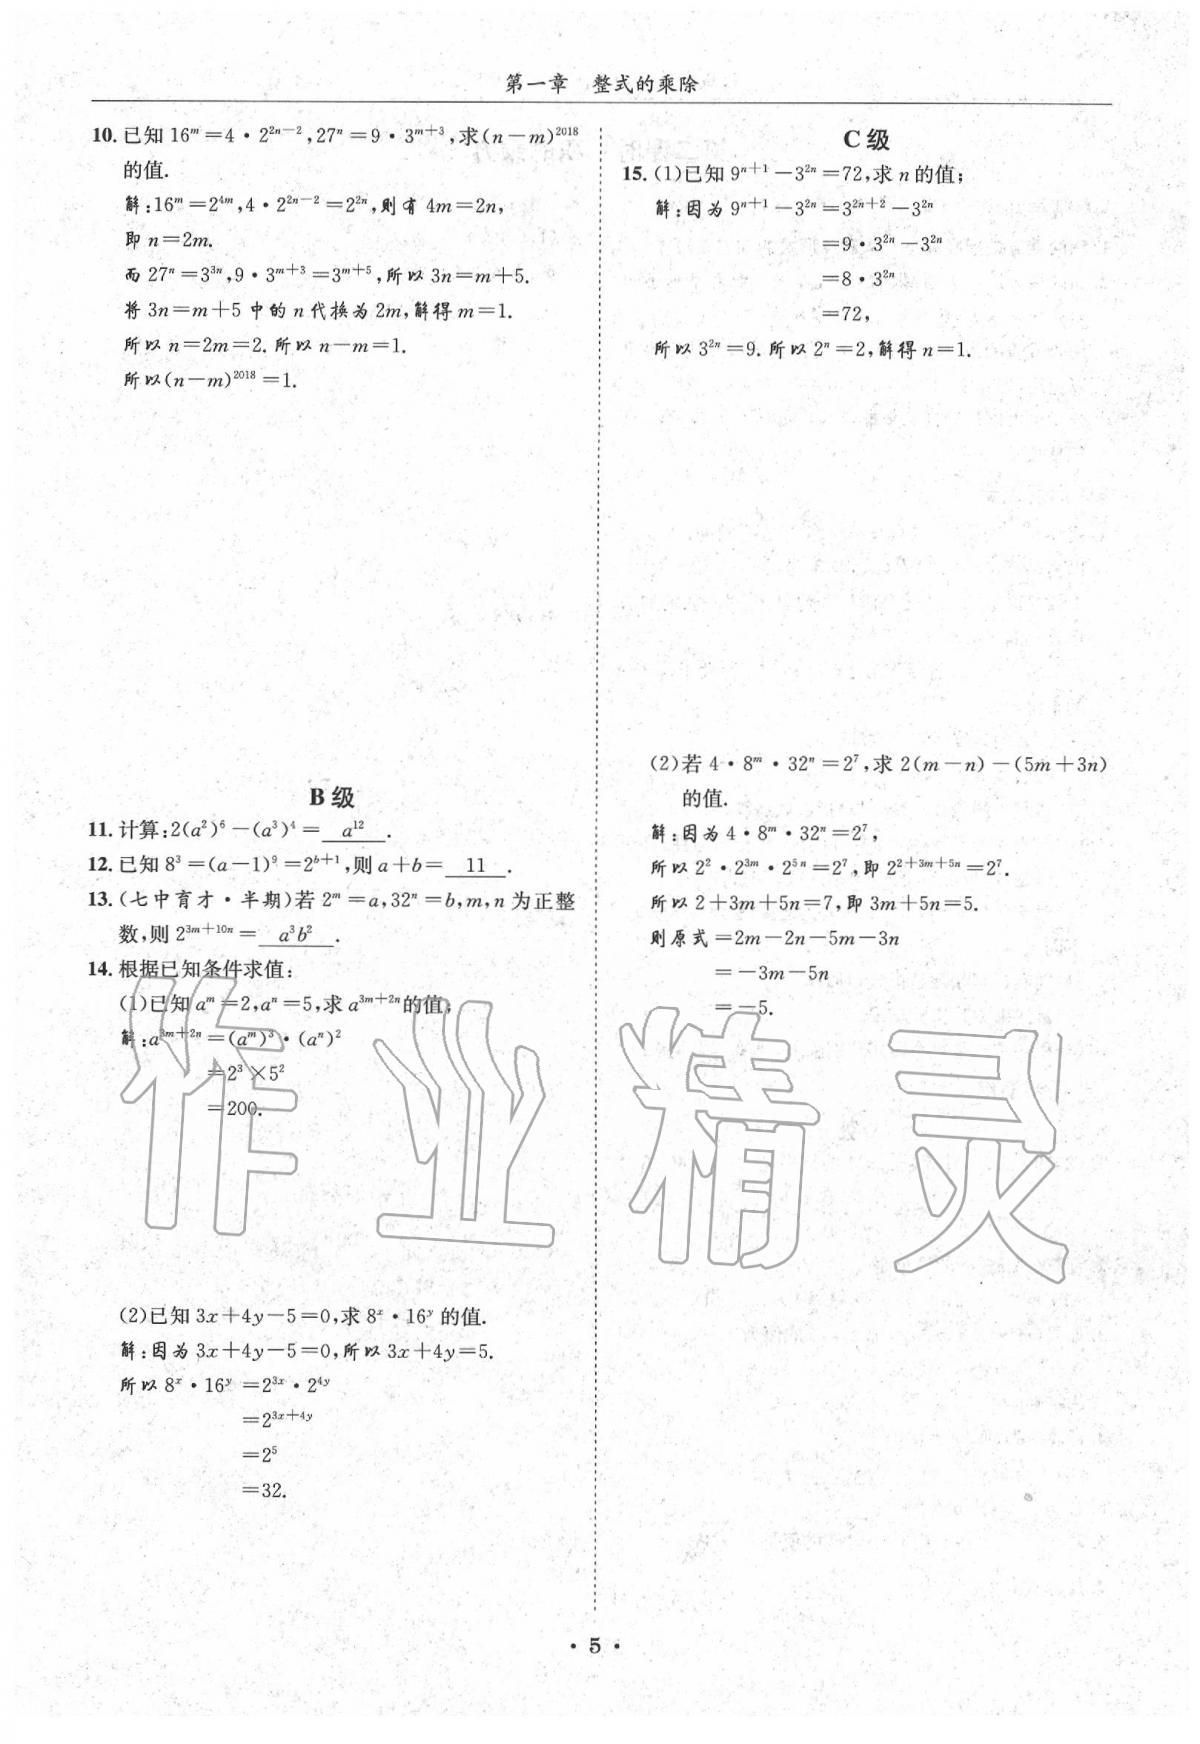 第一章　整式的乘除
10. 已知 16ᵐ＝4・2²ⁿ⁻²，27ⁿ＝9・3ᵐ⁺³，求(n－m)²⁰¹⁸
的值.
解：16ᵐ＝2⁴ᵐ，4・2²ⁿ⁻²＝2²ⁿ，则有 4m＝2n，
即 n＝2m.
而 27ⁿ＝3³ⁿ，9・3ᵐ⁺³＝3ᵐ⁺⁵，所以 3n＝m＋5.
将 3n＝m＋5 中的 n 代换为 2m，解得 m＝1.
所以 n＝2m＝2. 所以 n－m＝1.
所以(n－m)²⁰¹⁸＝1.
B 级
11. 计算：2(a²)⁶－(a³)⁴＝ a¹² .
12. 已知 8³＝(a－1)⁹＝2ᵇ⁺¹，则 a＋b＝ 11 .
13. (七中育才・半期)若 2ᵐ＝a，32ⁿ＝b，m，n 为正整
数，则 2³ᵐ⁺¹⁰ⁿ＝ a³b² .
14. 根据已知条件求值：
(1)已知 aᵐ＝2，aⁿ＝5，求 a³ᵐ⁺²ⁿ的值；
解：a³ᵐ⁺²ⁿ＝(aᵐ)³・(aⁿ)²
＝2³×5²
＝200.
(2)已知 3x＋4y－5＝0，求 8ˣ・16ʸ 的值.
解：因为 3x＋4y－5＝0，所以 3x＋4y＝5.
所以 8ˣ・16ʸ＝2³ˣ・2⁴ʸ
＝2³ˣ⁺⁴ʸ
＝2⁵
＝32.
C 级
15. (1)已知 9ⁿ⁺¹－3²ⁿ＝72，求 n 的值；
解：因为 9ⁿ⁺¹－3²ⁿ＝3²ⁿ⁺²－3²ⁿ
＝9・3²ⁿ－3²ⁿ
＝8・3²ⁿ
＝72，
所以 3²ⁿ＝9. 所以 2ⁿ＝2，解得 n＝1.
(2)若 4・8ᵐ・32ⁿ＝2⁷，求 2(m－n)－(5m＋3n)
的值.
解：因为 4・8ᵐ・32ⁿ＝2⁷，
所以 2²・2³ᵐ・2⁵ⁿ＝2⁷，即 2²⁺³ᵐ⁺⁵ⁿ＝2⁷.
所以 2＋3m＋5n＝7，即 3m＋5n＝5.
则原式＝2m－2n－5m－3n
＝－3m－5n
＝－5.
作业精灵
・5・